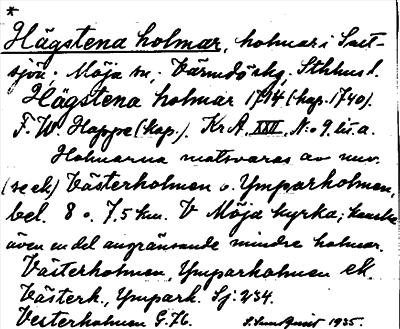 *
Hägstena holmar, holmar i Salt-
sjön; Möja sn; Värmdö skg; Sthlms l.
Hägstena holmar 1714 (kop. 1740).
F. W. Happe (kop.). Kr A, XXI, N:o 9 lit. a.
Holmarna motsvaras av nuv.
(se ek) Västerholmen o. Ymparholmen,
bel. 8 o. 7.5 km. V Möja kyrka; kanske
även en del angränsande mindre holmar.
Västerholmen, Ymparholmen ek.
Västerh., Ympark. Sj: 234.
Vesterholmen G.76. 1935.